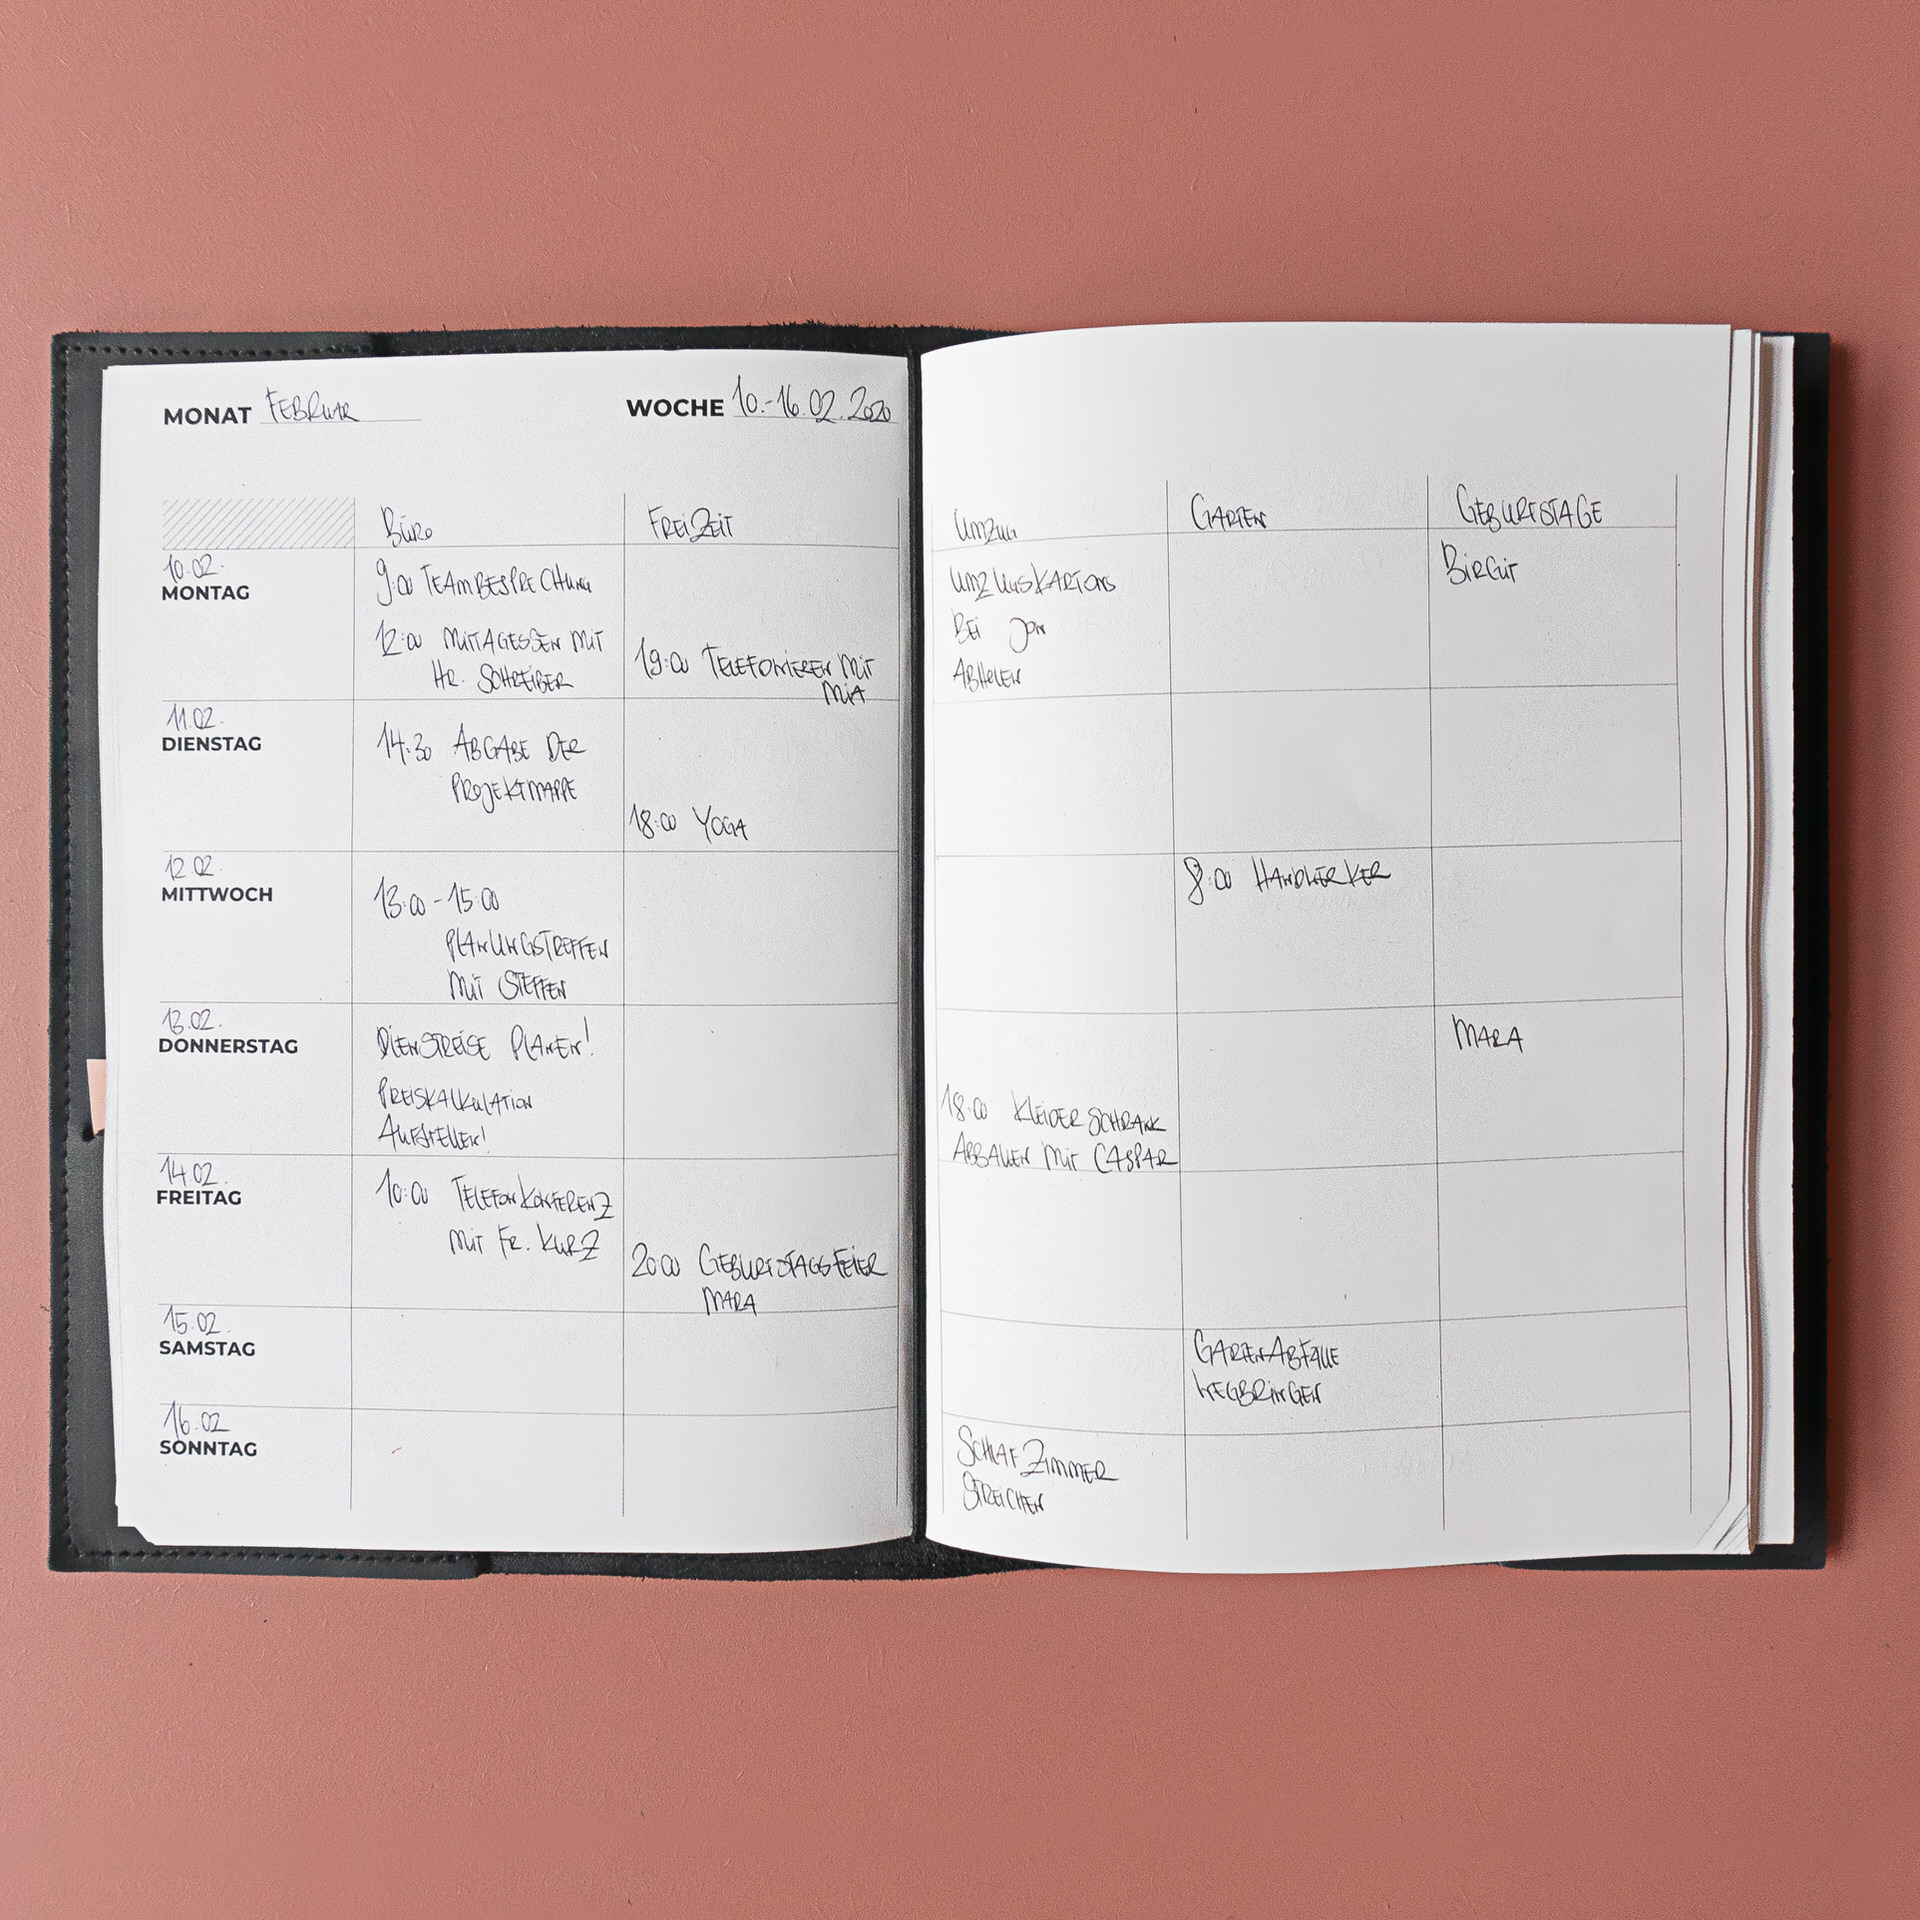 MONAT FEBRUAR
WOCHE 10.-16.02.2020
BÜRO
FREIZEIT
UMZUG
GARTEN
GEBURTSTAGE
10.02.
MONTAG
9:00 TEAMBESPRECHUNG
12:00 MITTAGESSEN MIT
HR. SCHREIBER
19:00 TELEFONIEREN MIT
MIA
UMZUGSKARTONS
BEI JON
ABHOLEN
BIRGIT
11.02.
DIENSTAG
14:30 ABGABE DER
PROJEKTMAPPE
18:00 YOGA
12.02.
MITTWOCH
13:00-15:00
PLANUNGSTREFFEN
MIT STEFFEN
8:00 HANDWERKER
13.02.
DONNERSTAG
DIENSTREISE PLANEN!
PREISKALKULATION
AUFSTELLEN!
18:00 KLEIDERSCHRANK
ABBAUEN MIT CASPAR
MARA
14.02.
FREITAG
10:00 TELEFONKONFERENZ
MIT FR. KURZ
20:00 GEBURTSTAGSFEIER
MARA
15.02.
SAMSTAG
GARTENABFÄLLE
WEGBRINGEN
16.02
SONNTAG
SCHLAFZIMMER
STREICHEN